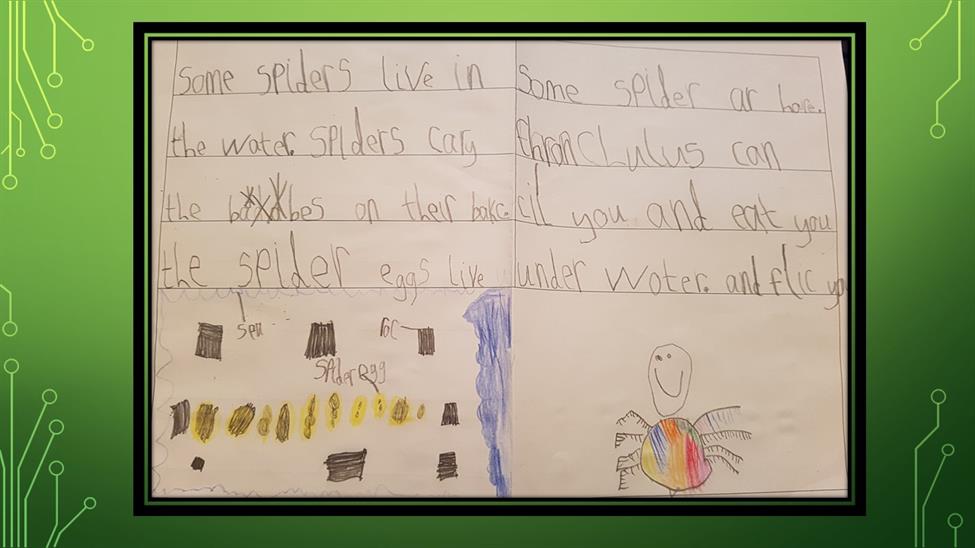 Some spiders live in
the water. spiders cary
the babes on their bakc.
the spider eggs live
roC
Spider egg
Some spider ar here.
thronchulus can
cil you and eat you
under woter. and flic you